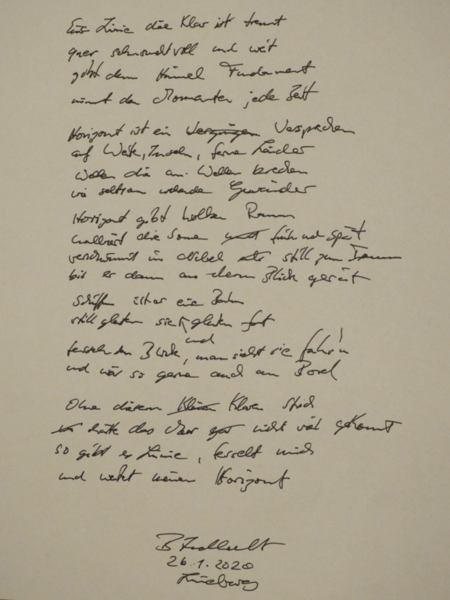 Eine Linie die klar ist trennt
quer sehnsuchtvoll und weit
gibt dem Himmel Fundament
nimmt den Momenten jede Zeit
Horizont ist ein Vergnügen Versprechen
auf Weite, Inseln, ferne Länder
Wellen die an Wellen brechen
wie seltsam wehende Gewänder
Horizont gibt Wolken Raum
die Sonne früh und spät
verschwimmt im Nebel still zum Traum
bis er dann aus dem Blick gerät
Schiffen ist er eine Bahn
still gleiten sie gleiten fort
und
fesseln den Blick, man sieht sie fahr'n
und wär so gerne auch an Bord
Ohne diesen klaren Strich
hätte das Meer nicht viel gekonnt
so gibt er Linie, fesselt mich
und weitet meinen Horizont
26.1.2020
Lüneburg